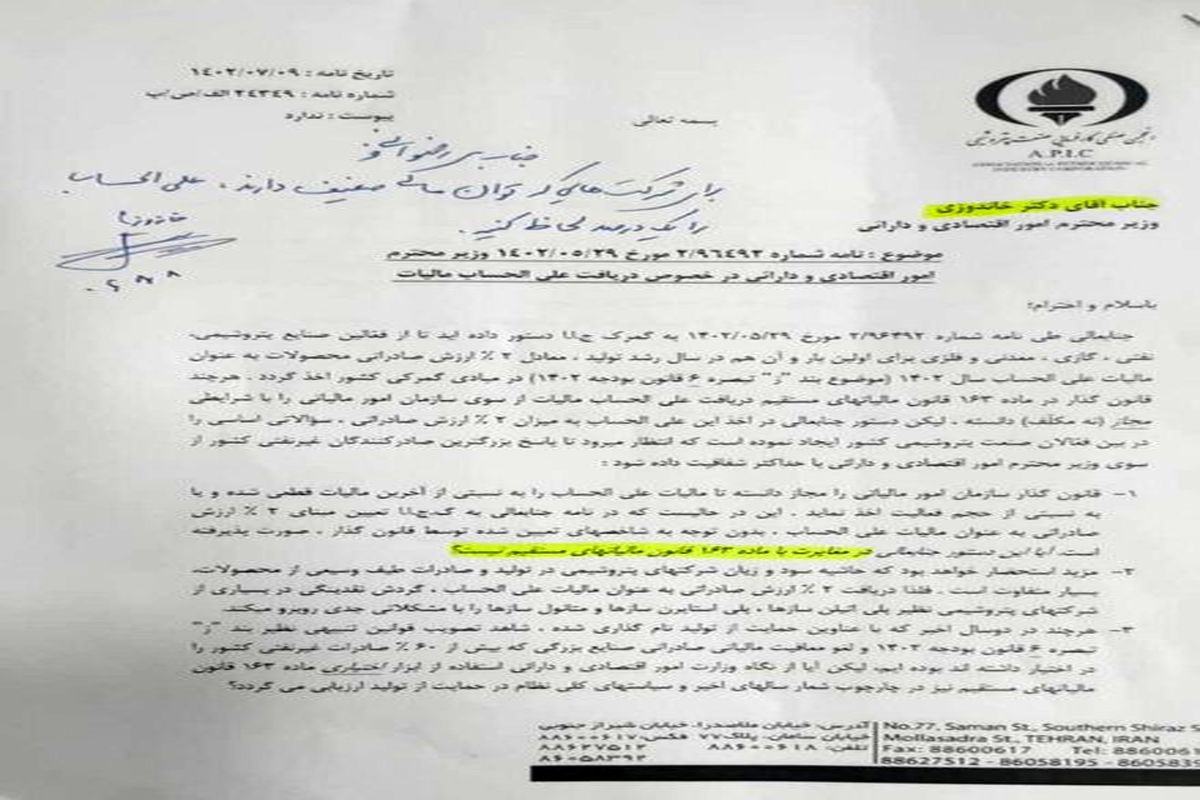 تاریخ نامه : ۱۴۰۲/۰۷/۰۹
شماره نامه : ۲۴۳۴۹ الف/ص/پ
پیوست : ندارد
بسمه تعالی
انجمن صنفی کارفرمایی صنعت پتروشیمی
A.P.I.C
ASSOCIATION of PETROCHEMICAL
INDUSTRY CORPORATION
جناب آقای دکتر خاندوزی
وزیر محترم امور اقتصادی و دارائی
جناب
برای شرکت‌هایی که توان مالی ضعیف دارند، علی الحساب
را یک درصد لحاظ کنید.
موضوع : نامه شماره ۲/۹۶۴۹۲ مورخ ۱۴۰۲/۰۵/۲۹ وزیر محترم
امور اقتصادی و دارائی در خصوص دریافت علی الحساب مالیات
باسلام و احترام؛
جنابعالی طی نامه شماره ۲/۹۶۴۹۲ مورخ ۱۴۰۲/۰۵/۲۹ به گمرک ج.ا.ا دستور داده اید تا از فعالین صنایع پتروشیمی،
نفتی ، گازی ، معدنی و فلزی برای اولین بار و آن هم در سال رشد تولید ، معادل ۲ ٪ ارزش صادراتی محصولات به عنوان
مالیات علی الحساب سال ۱۴۰۲ (موضوع بند "ز" تبصره ۶ قانون بودجه ۱۴۰۲) در مبادی گمرکی کشور اخذ گردد . هرچند
قانون گذار در ماده ۱۶۳ قانون مالیاتهای مستقیم دریافت علی الحساب مالیات از سوی سازمان امور مالیاتی را با شرایطی
مجاز (نه مکلف) دانسته ، لیکن دستور جنابعالی در اخذ این علی الحساب به میزان ۲ ٪ ارزش صادراتی ، سؤالاتی اساسی را
در بین فعالان صنعت پتروشیمی کشور ایجاد نموده است که انتظار میرود تا پاسخ بزرگترین صادرکنندگان غیرنفتی کشور از
سوی وزیر محترم امور اقتصادی و دارائی با حداکثر شفافیت داده شود :
۱- قانون گذار سازمان امور مالیاتی را مجاز دانسته تا مالیات علی الحساب را به نسبتی از آخرین مالیات قطعی شده و یا
به نسبتی از حجم فعالیت اخذ نماید . این در حالیست که در نامه جنابعالی به گ.ج.ا.ا تعیین مبنای ۲ ٪ ارزش
صادراتی به عنوان مالیات علی الحساب ، بدون توجه به شاخصهای تعیین شده توسط قانون گذار ، صورت پذیرفته
است. آیا این دستور جنابعالی در مغایرت با ماده ۱۶۳ قانون مالیاتهای مستقیم نیست؟
۲- مزید استحضار خواهد بود که حاشیه سود و زیان شرکتهای پتروشیمی در تولید و صادرات طیف وسیعی از محصولات،
بسیار متفاوت است . فلذا دریافت ۲ ٪ ارزش صادراتی به عنوان مالیات علی الحساب ، گردش نقدینگی در بسیاری از
شرکتهای پتروشیمی نظیر پلی اتیلن سازها ، پلی استایرن سازها و متانول سازها را با مشکلاتی جدی روبرو میکند.
۳- هرچند در دوسال اخیر که با عناوین حمایت از تولید نام گذاری شده ، شاهد تصویب قوانین تنبیهی نظیر بند "ز"
تبصره ۶ قانون بودجه ۱۴۰۲ و لغو معافیت مالیاتی صادراتی صنایع بزرگی که بیش از ۶۰ ٪ صادرات غیرنفتی کشور را
در اختیار داشته اند بوده ایم، لیکن آیا از نگاه وزارت امور اقتصادی و دارائی استفاده از ابزار اختیاری ماده ۱۶۳ قانون
مالیاتهای مستقیم نیز در چارچوب شعار سالهای اخیر و سیاستهای کلی نظام در حمایت از تولید ارزیابی می گردد؟
آدرس: خیابان ملاصدرا، خیابان شیراز جنوبی
خیابان سامان، پلاک۷۷ فکس: ۸۸۶۰۰۶۱۷
تلفن: ۸۸۶۰۰۶۱۸ ۸۸۶۲۷۵۱۲
۸۶۰۵۸۳۹۲
No.77, Saman St., Southern Shiraz S
Mollasadra St., TEHRAN, IRAN
Fax: 88600617 Tel: 8860061
88627512 - 86058195 - 8605839